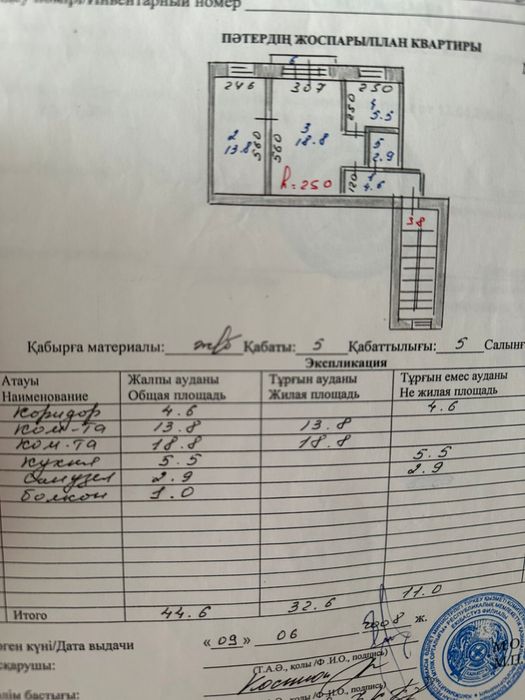 Инвентарный номер
ПӘТЕРДІҢ ЖОСПАРЫ/ПЛАН КВАРТИРЫ
6
246 307 250
250 4 5.5
2 13.8 560 560 3 18.8
5 2.9
120 1 4.6
h=250
38
Қабырға материалы: Қабаты: 5 Қабаттылығы: 5
Экспликация
Атауы Жалпы ауданы Тұрғын ауданы Тұрғын емес ауданы
Наименование Общая площадь Жилая площадь Не жилая площадь
Коридор 4.6 4.6
Ком-та 13.8 13.8
Ком-та 18.8 18.8
Кухня 5.5 5.5
Санузел 2.9 2.9
Болкон 1.0
Итого 44.6 32.6 11.0
күні/Дата выдачи «09» 06 2008 ж.
(Т.А.Ә., қолы /Ф.И.О., подпись)
М.О.
М.П.
бастығы:
(Т.А.Ә., қолы /Ф.И.О., подпись)